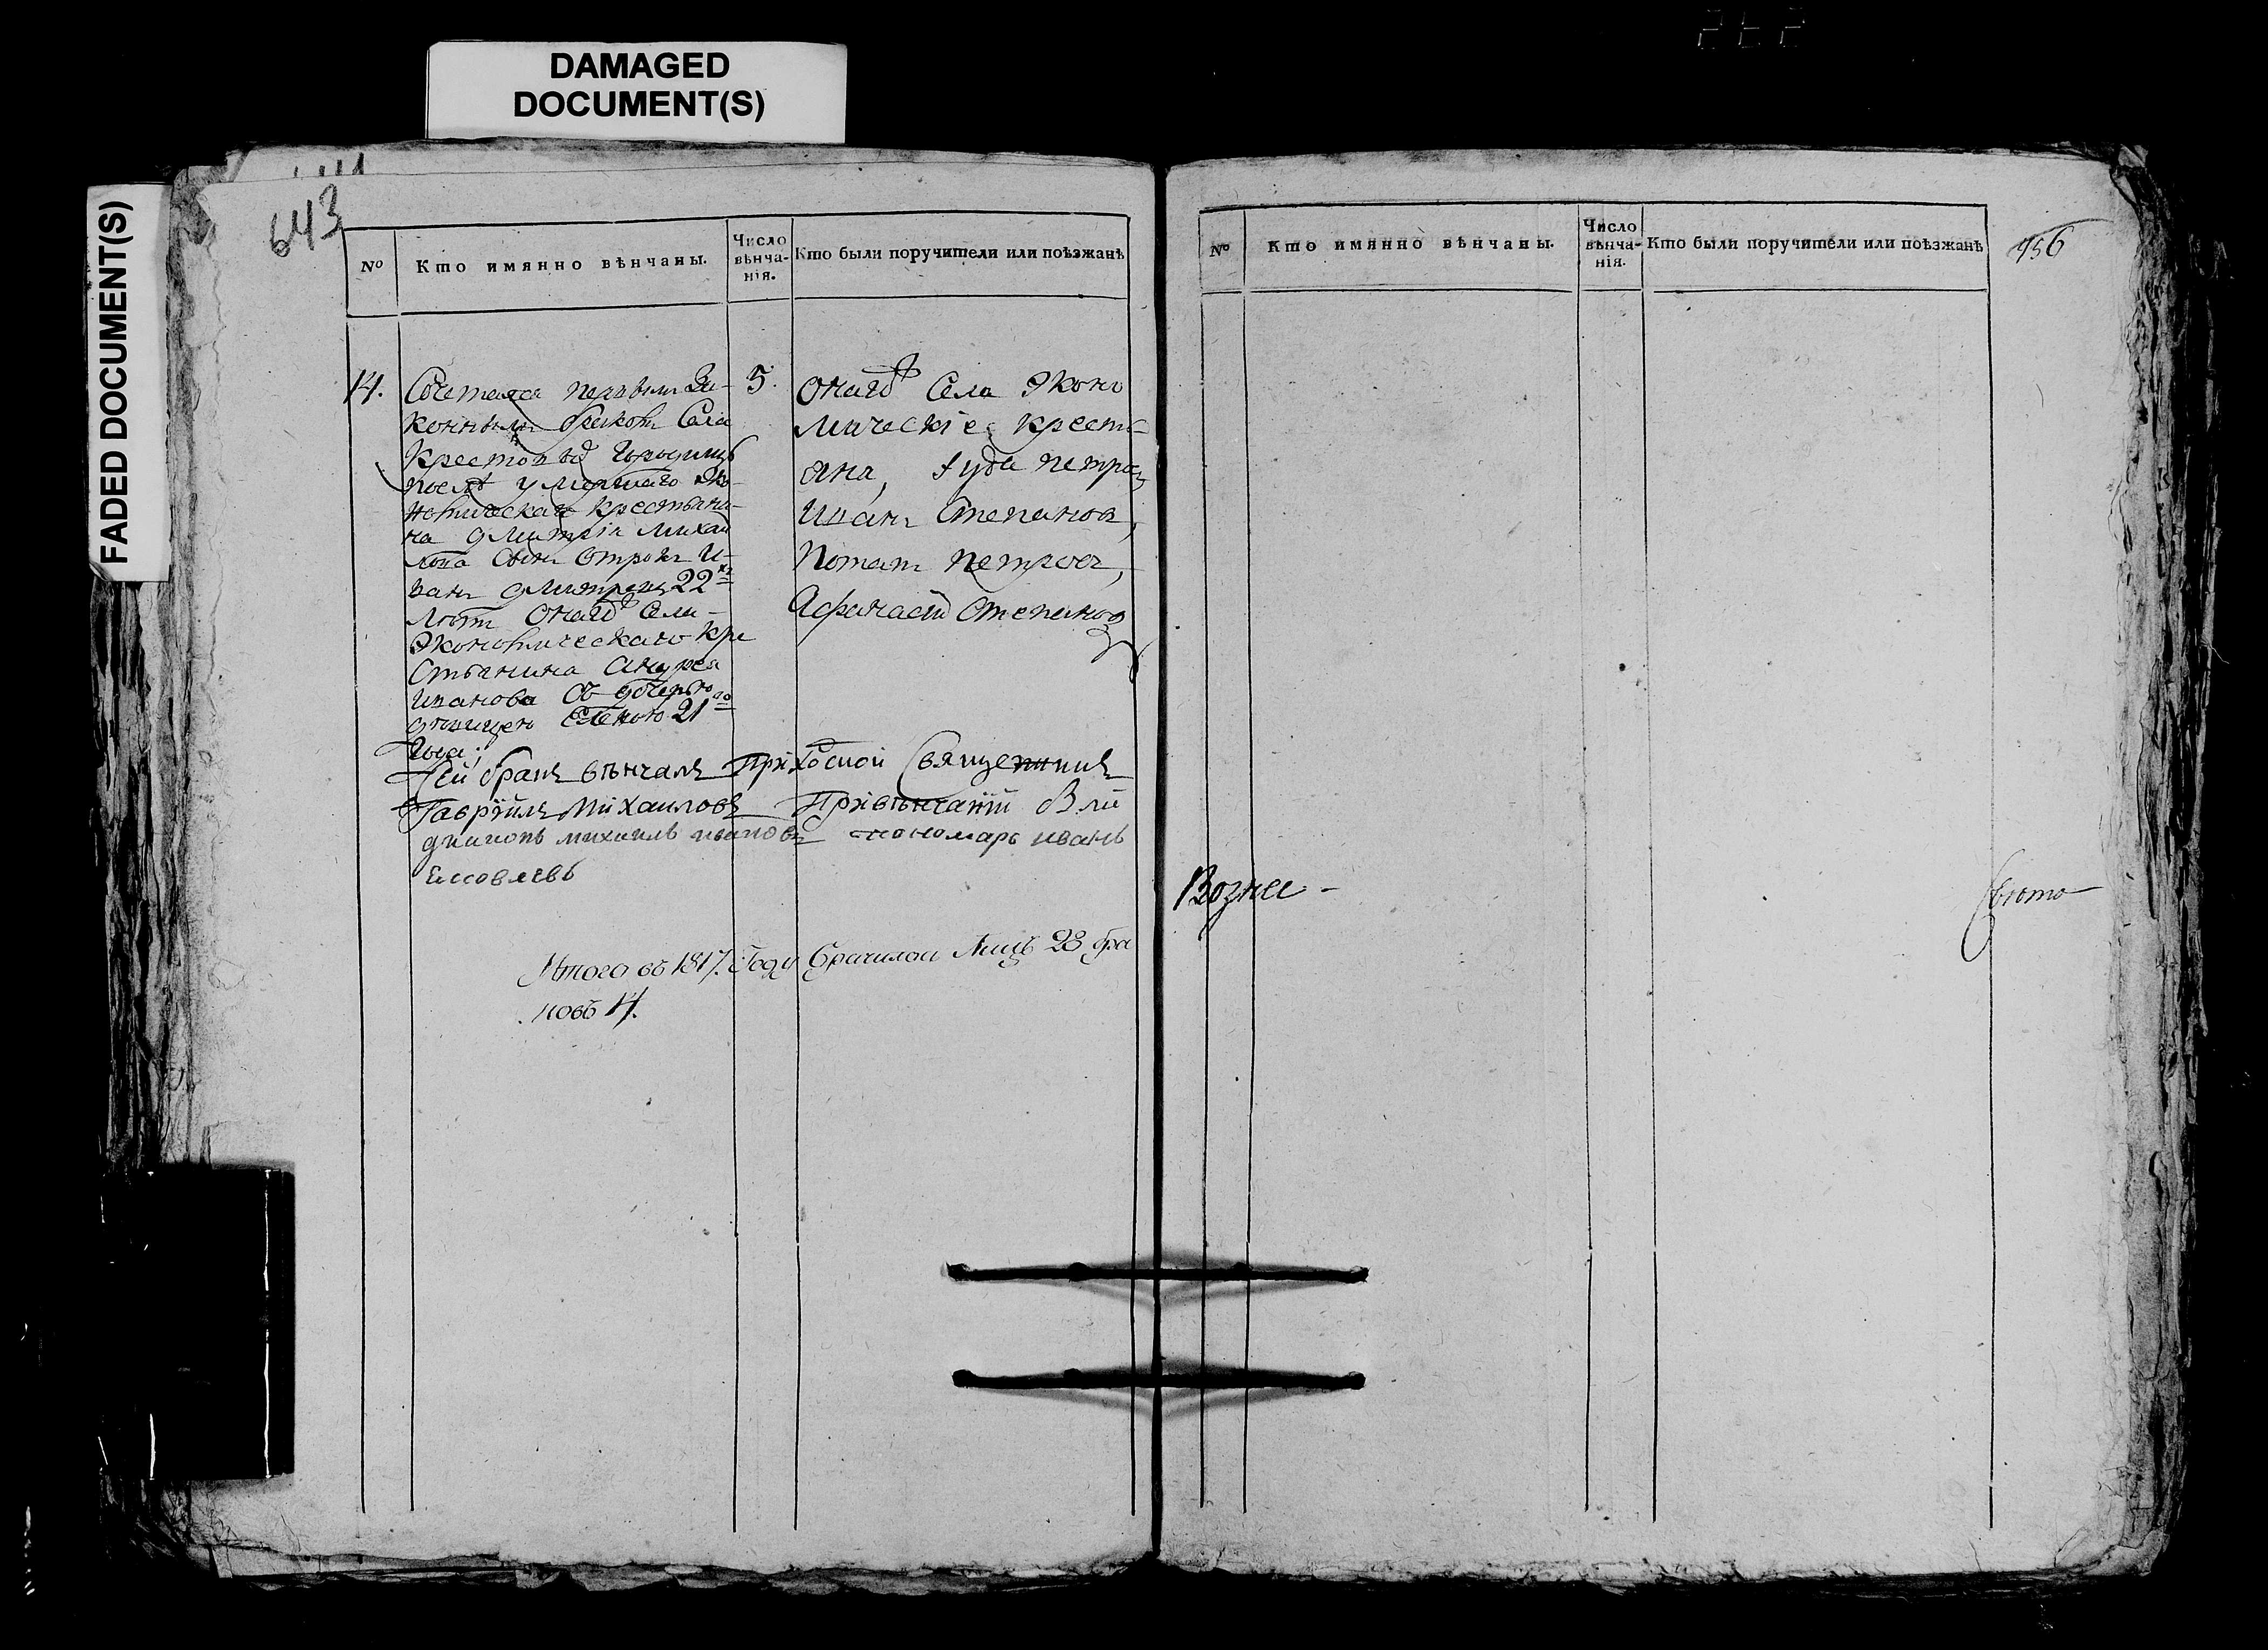 DAMAGED
DOCUMENT(S)
FADED DOCUMENT(S)
643
№
Кто имянно вѣнчаны.
Число
вѣнча-
нія.
Кто были поручители или поѣзжанѣ
14.
Сочетался первымъ За-
коннымъ бракомъ Села
Крестовъ Городищь
послѣ умершаго Эко-
номическаго крестьяни-
на Дмитрія Михаи
лова Сынъ Отрокъ И-
ванъ Дмитревъ 22хъ
Лѣтъ Онагѡ Села-
Экономическаго Кре
стьянина Андрея
Иванова Съ дочерью
дѣвицею Еленою 21го
Года;
5.
Онагѡ Села Эконо
мическіе крестья-
яна, Іуда Петровъ
Иванъ Степановъ,
Потапъ Петровъ,
Афанасій Степановъ
Сей бракъ вѣнчалъ Приходской Священникъ
Гаврїилъ Михаиловъ При вѣнчанїи Были
диаконъ михаилъ ивановъ пономарь иванъ
Яковлевъ
Итого въ 1817. Году Брачилси Лицъ 28 бра
ковъ 14.
№
Кто имянно вѣнчаны.
Число
вѣнча-
нія.
Кто были поручители или поѣзжанѣ
456
Вознес-
Свято-